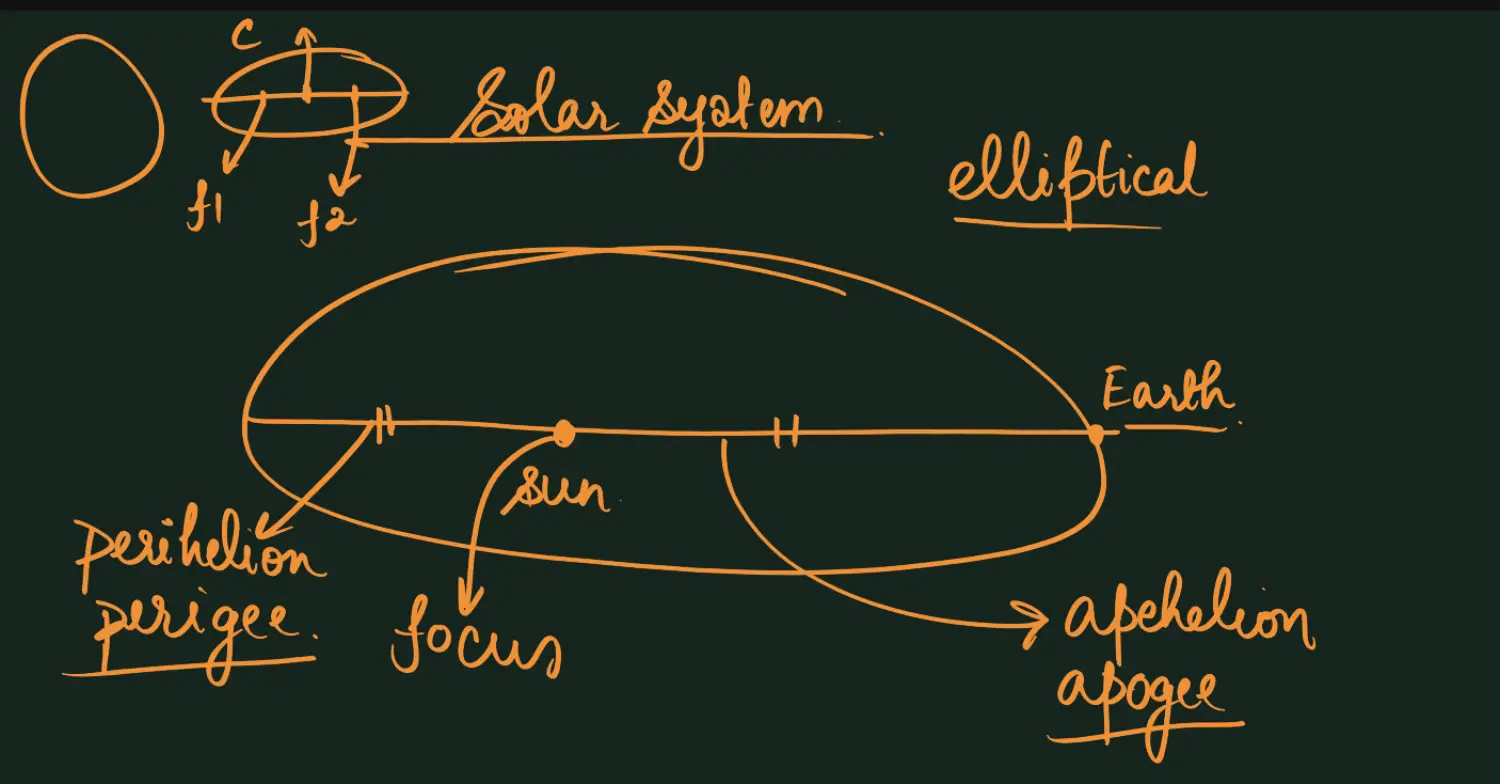 C
Solar System
f1
f2
elliptical
Earth
Sun
perihelion
perigee
focus
apehelion
apogee